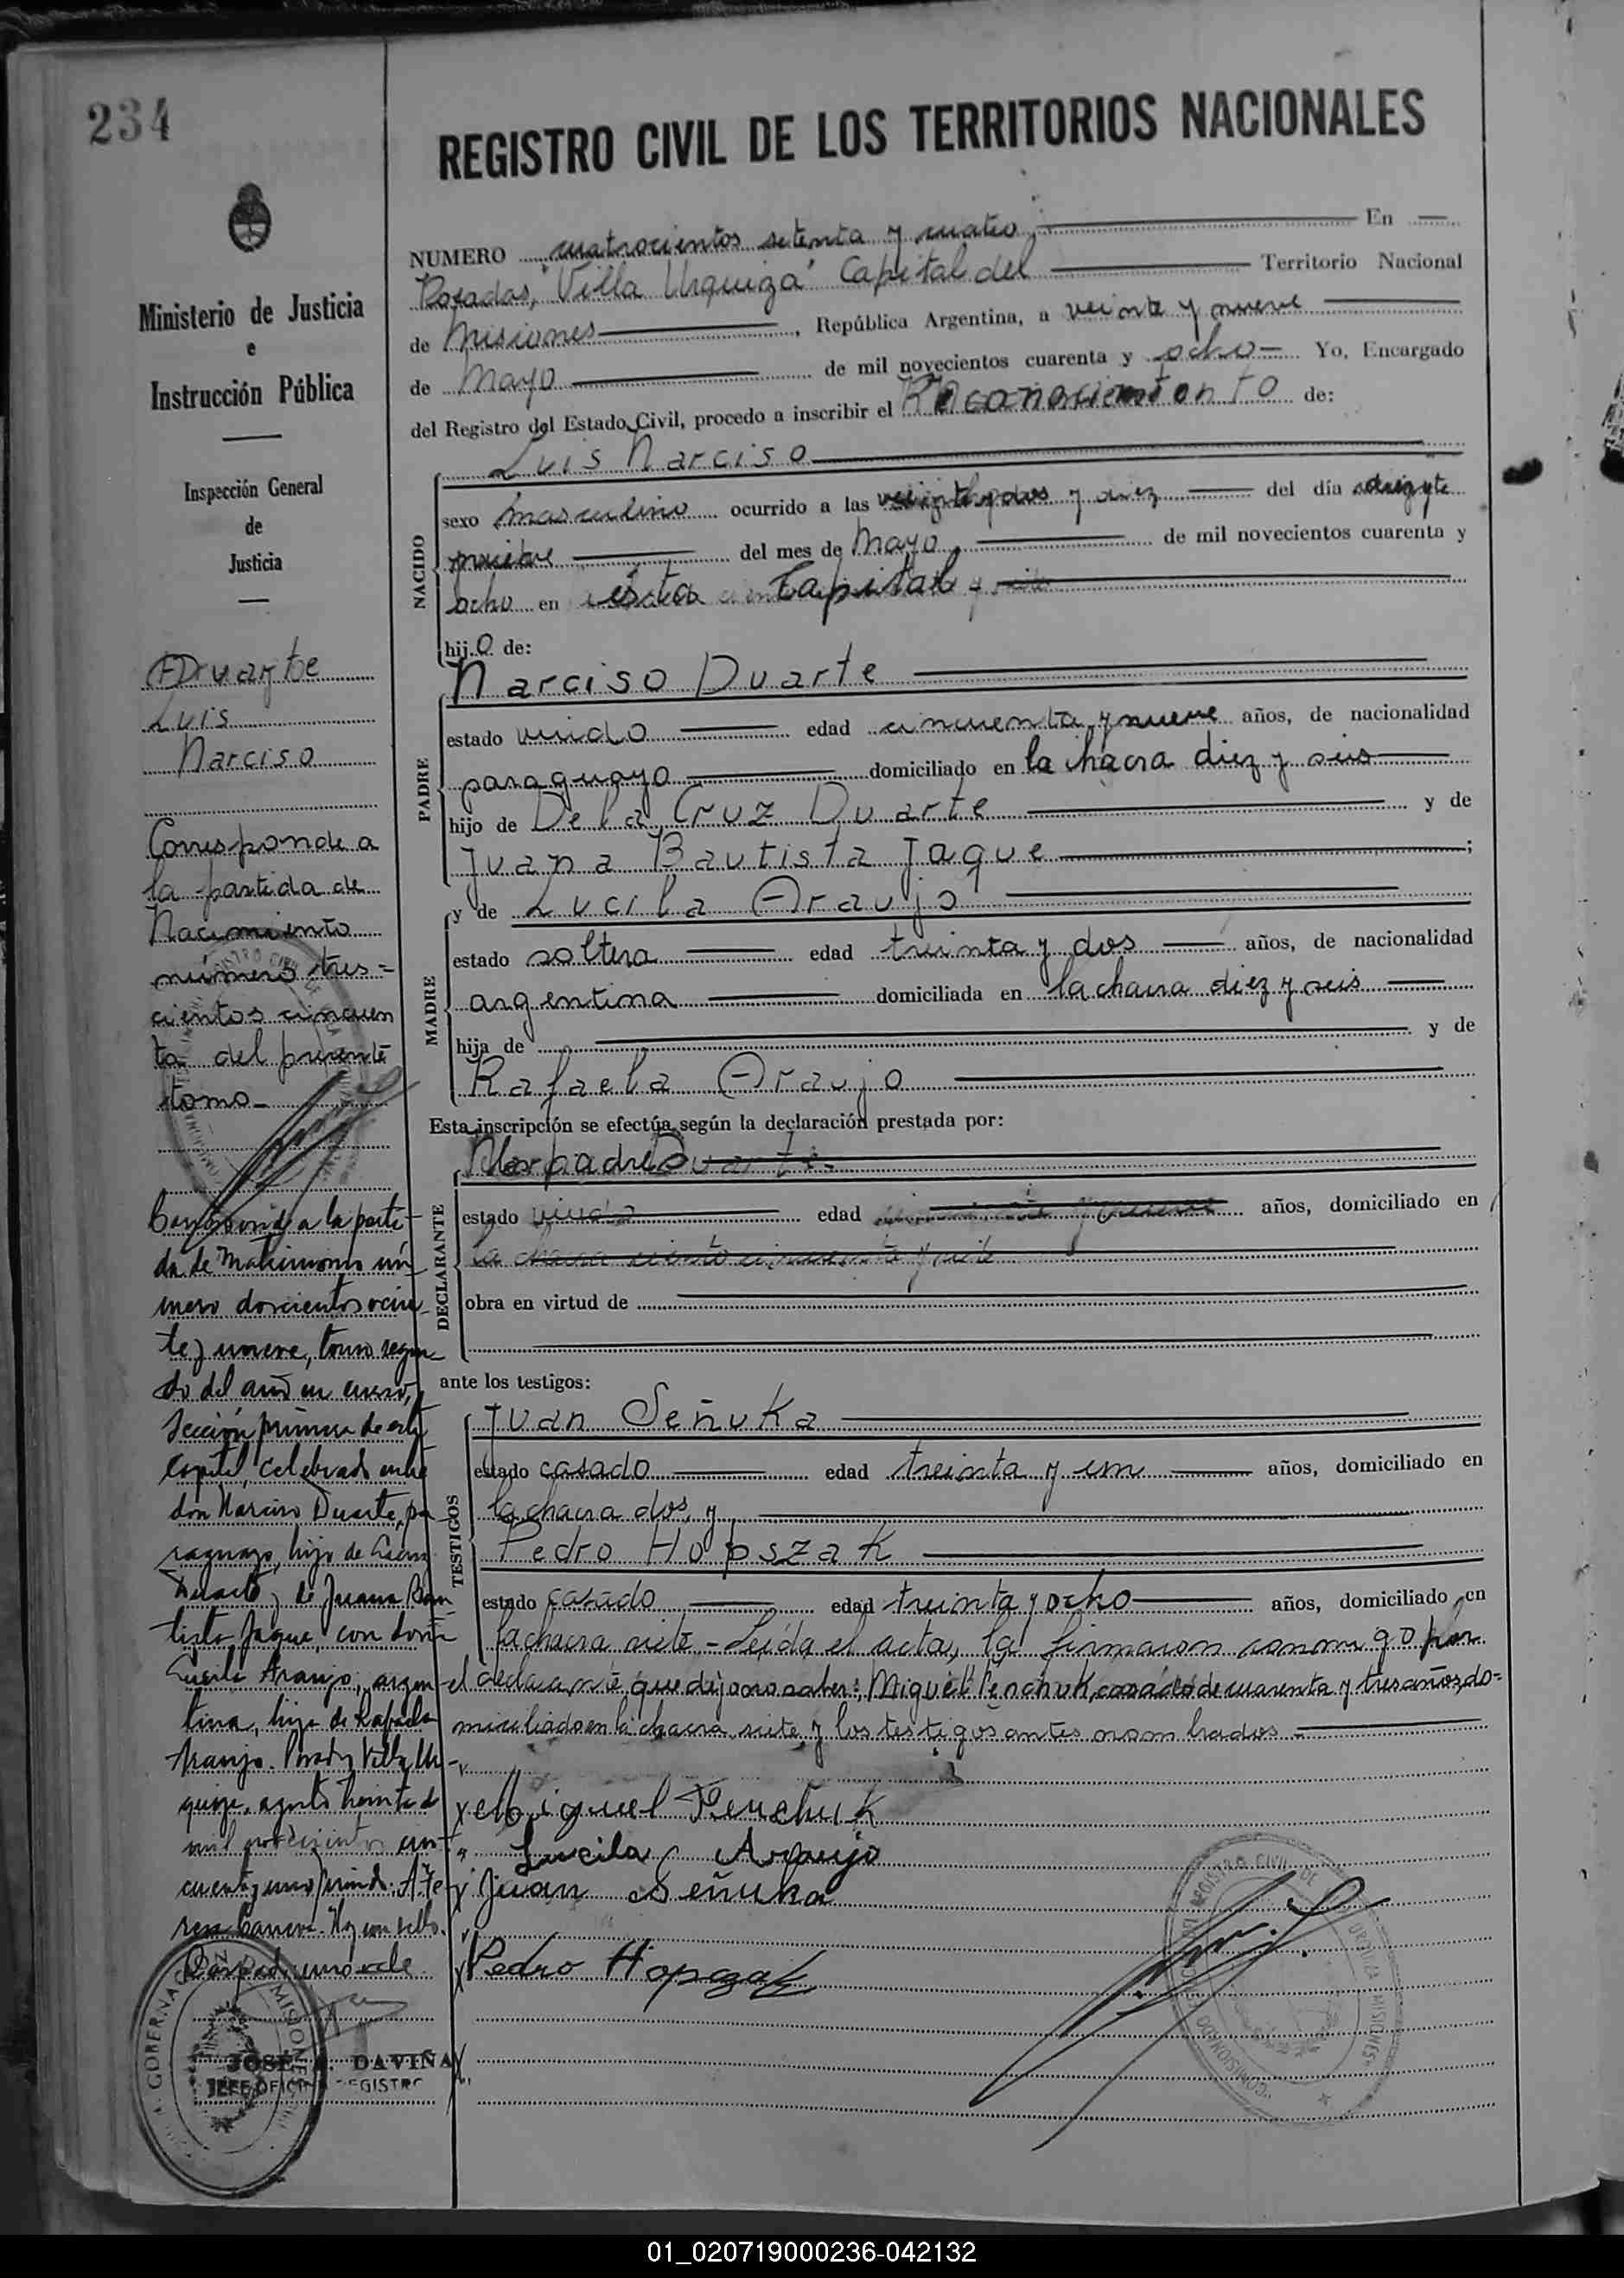 234
REGISTRO CIVIL DE LOS TERRITORIOS NACIONALES
Ministerio de Justicia
e
Instrucción Pública
Inspección General
de
Justicia
Duarte
Luis
Narciso
Corresponde a
la partida de
Nacimiento
número tres=
cientos cincuen
ta del presente
tomo-
Corresponde a la parti-
da de Matrimonio nú-
mero doscientos vein-
te y nueve, tomo segun-
do del año en curso,
Sección primera de esta
Capital, celebrado entre
don Narciso Duarte, pa-
raguayo, hijo de
Duarte y de Juana Bau
tista Jaque, con doña
Lucila Araujo, argen-
tina, hija de Rafaela
Araujo. Posadas, Villa Ur-
quiza, agosto treinta de
mil novecientos cin-
cuenta y uno
Hay un sello.
JOSÉ A. DAVIÑA
JEFE OFICINA REGISTRO
NUMERO cuatrocientos setenta y cuatro. En
Posadas, "Villa Urquiza" Capital del Territorio Nacional
de Misiones, República Argentina, a veinte y nueve
de Mayo de mil novecientos cuarenta y ocho- Yo, Encargado
del Registro del Estado Civil, procedo a inscribir el Reconocimiento de:
Luis Narciso
NACIDO
sexo masculino ocurrido a las y diez del día
del mes de Mayo de mil novecientos cuarenta y
ocho en ésta Capital
hijo de:
PADRE
Narciso Duarte
estado viudo edad cincuenta y nueve años, de nacionalidad
paraguayo domiciliado en la chacra diez y seis
hijo de De la Cruz Duarte y de
Juana Bautista Jaque;
MADRE
y de Lucila Araujo
estado soltera edad treinta y dos años, de nacionalidad
argentina domiciliada en la chacra diez y seis
hija de y de
Rafaela Araujo
Esta inscripción se efectúa según la declaración prestada por:
DECLARANTE
padre
estado viudo edad años, domiciliado en
la chacra ciento cincuenta y siete
obra en virtud de
ante los testigos:
TESTIGOS
Juan Señuka
estado casado edad treinta y un años, domiciliado en
la chacra dos, y
Pedro Hopszak
estado casado edad treinta y ocho años, domiciliado en
la chacra siete - Leída el acta, la firmaron conmigo por
el declarante que dijo no saber: Miguel Penchuk, casado de cuarenta y tres años do=
miciliado en la chacra siete y los testigos antes nombrados.
Miguel Penchuk
Lucila Araujo
Juan Señuka
Pedro Hopszak
01_020719000236-042132